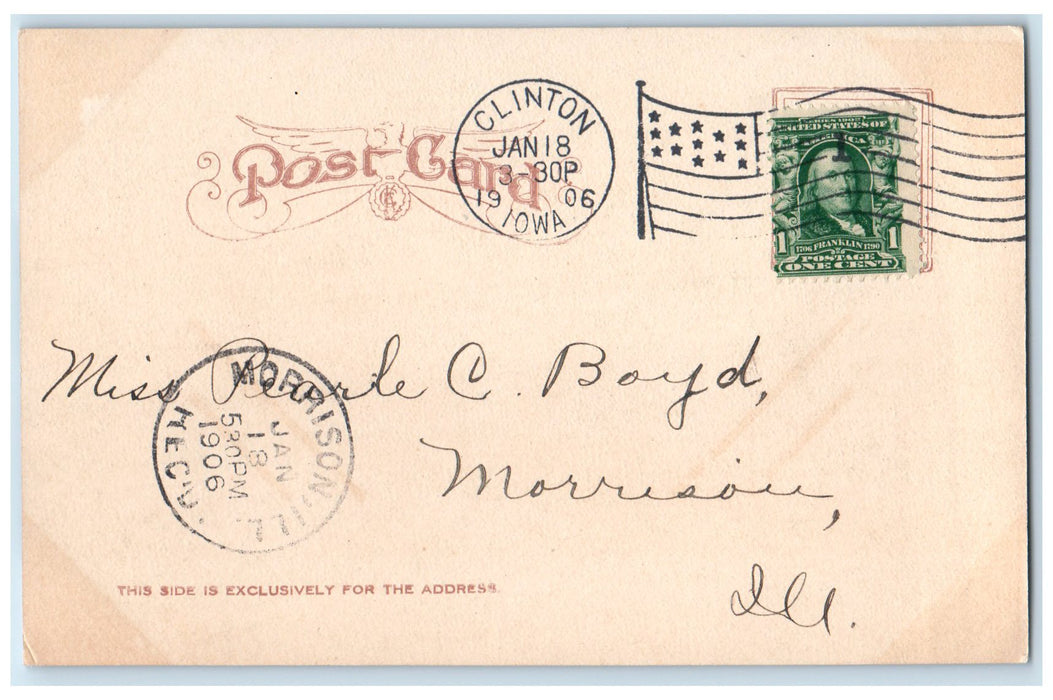 Post Card
CLINTON
JAN 18
3-30P
19 06
IOWA
SERIES 1902
UNITED STATES OF
AMERICA
1
1 1706 FRANKLIN 1790 1
POSTAGE
ONE CENT
Miss Pearle C. Boyd,
Morrison,
Ill.
MORRISON, ILL.
JAN
18
530PM
1906
REC'D.
THIS SIDE IS EXCLUSIVELY FOR THE ADDRESS.